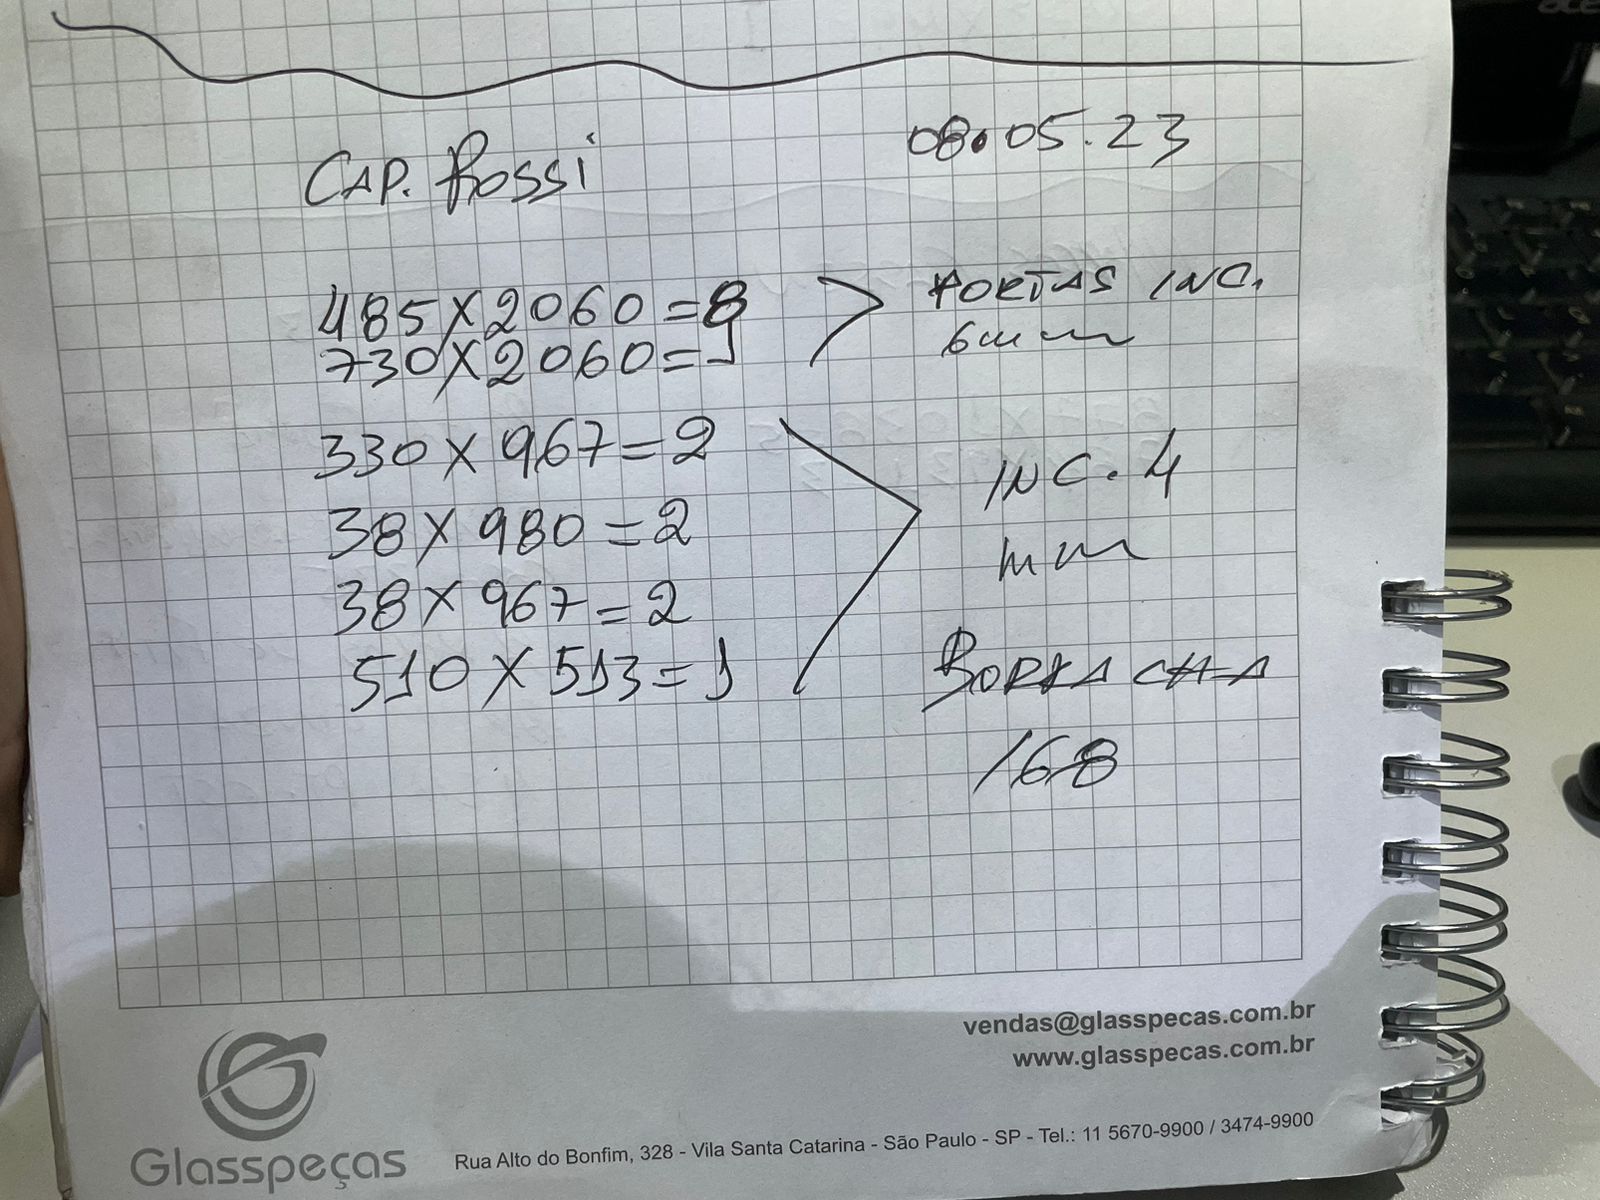 CAP. ROSSI
08.05.23
485 X 2060 = 8
730 X 2060 = 1
PORTAS INC.
6mm
330 X 967 = 2
38 X 980 = 2
38 X 967 = 2
510 X 513 = 1
INC. 4
mm
BORRACHA
168
vendas@glasspecas.com.br
www.glasspecas.com.br
Glasspeças
Rua Alto do Bonfim, 328 - Vila Santa Catarina - São Paulo - SP - Tel.: 11 5670-9900 / 3474-9900